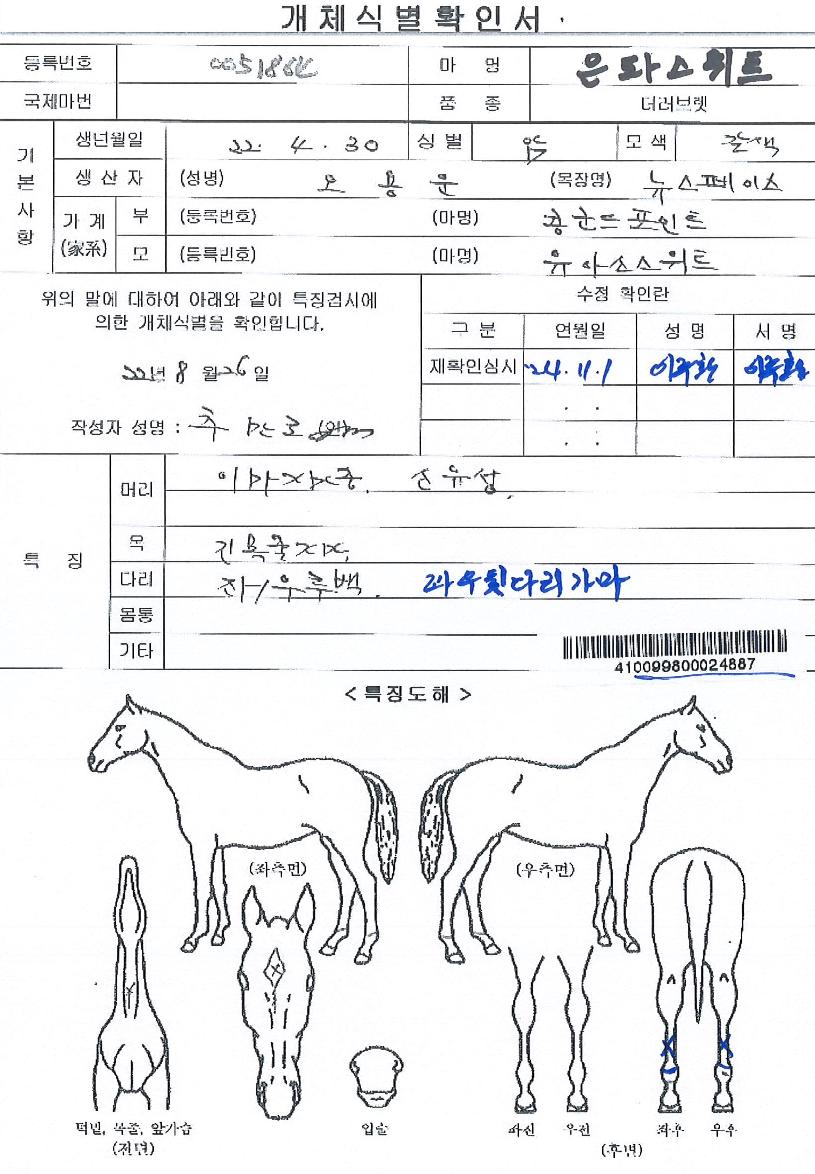 개체식별확인서
등록번호 0051884 마 명 은파스위트
국제마번 품 종 더러브렛
기본사항
생년월일 22. 4. 30 성별 암 모색 갈색
생산자 (성명) 오 용 운 (목장명) 뉴스페이스
가계 (家系) 부 (등록번호) (마명) 콩코드포인트
모 (등록번호) (마명) 유아소스위트
위의 말에 대하여 아래와 같이 특징검사에
의한 개체식별을 확인합니다.
22년 8 월 26 일
작성자 성명 : 추
수정 확인란
구 분 연월일 성 명 서 명
재확인심사 '24. 11. 1 이주환 이주환
. .
. .
특 징
머리 이마자축. 선유성.
목 긴목줄자축.
다리 좌/우후백. 좌우뒷다리가마
몸통
기타
410099800024887
< 특징도해 >
(좌측면) (우측면)
턱밑, 목줄, 앞가슴
(전면)
입술
좌전 우전 좌후 우후
(후면)